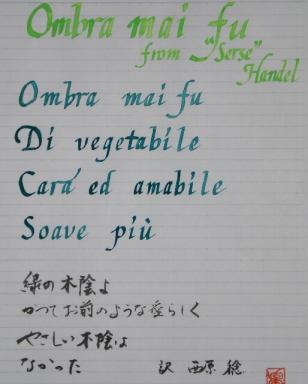 Ombra mai fu
from "Serse"
Handel
Ombra mai fu
Di vegetabile
Cara ed amabile
Soave più
緑の木陰よ
かつてお前のような愛らしく
やさしい木陰は
なかった 訳 西原 稔